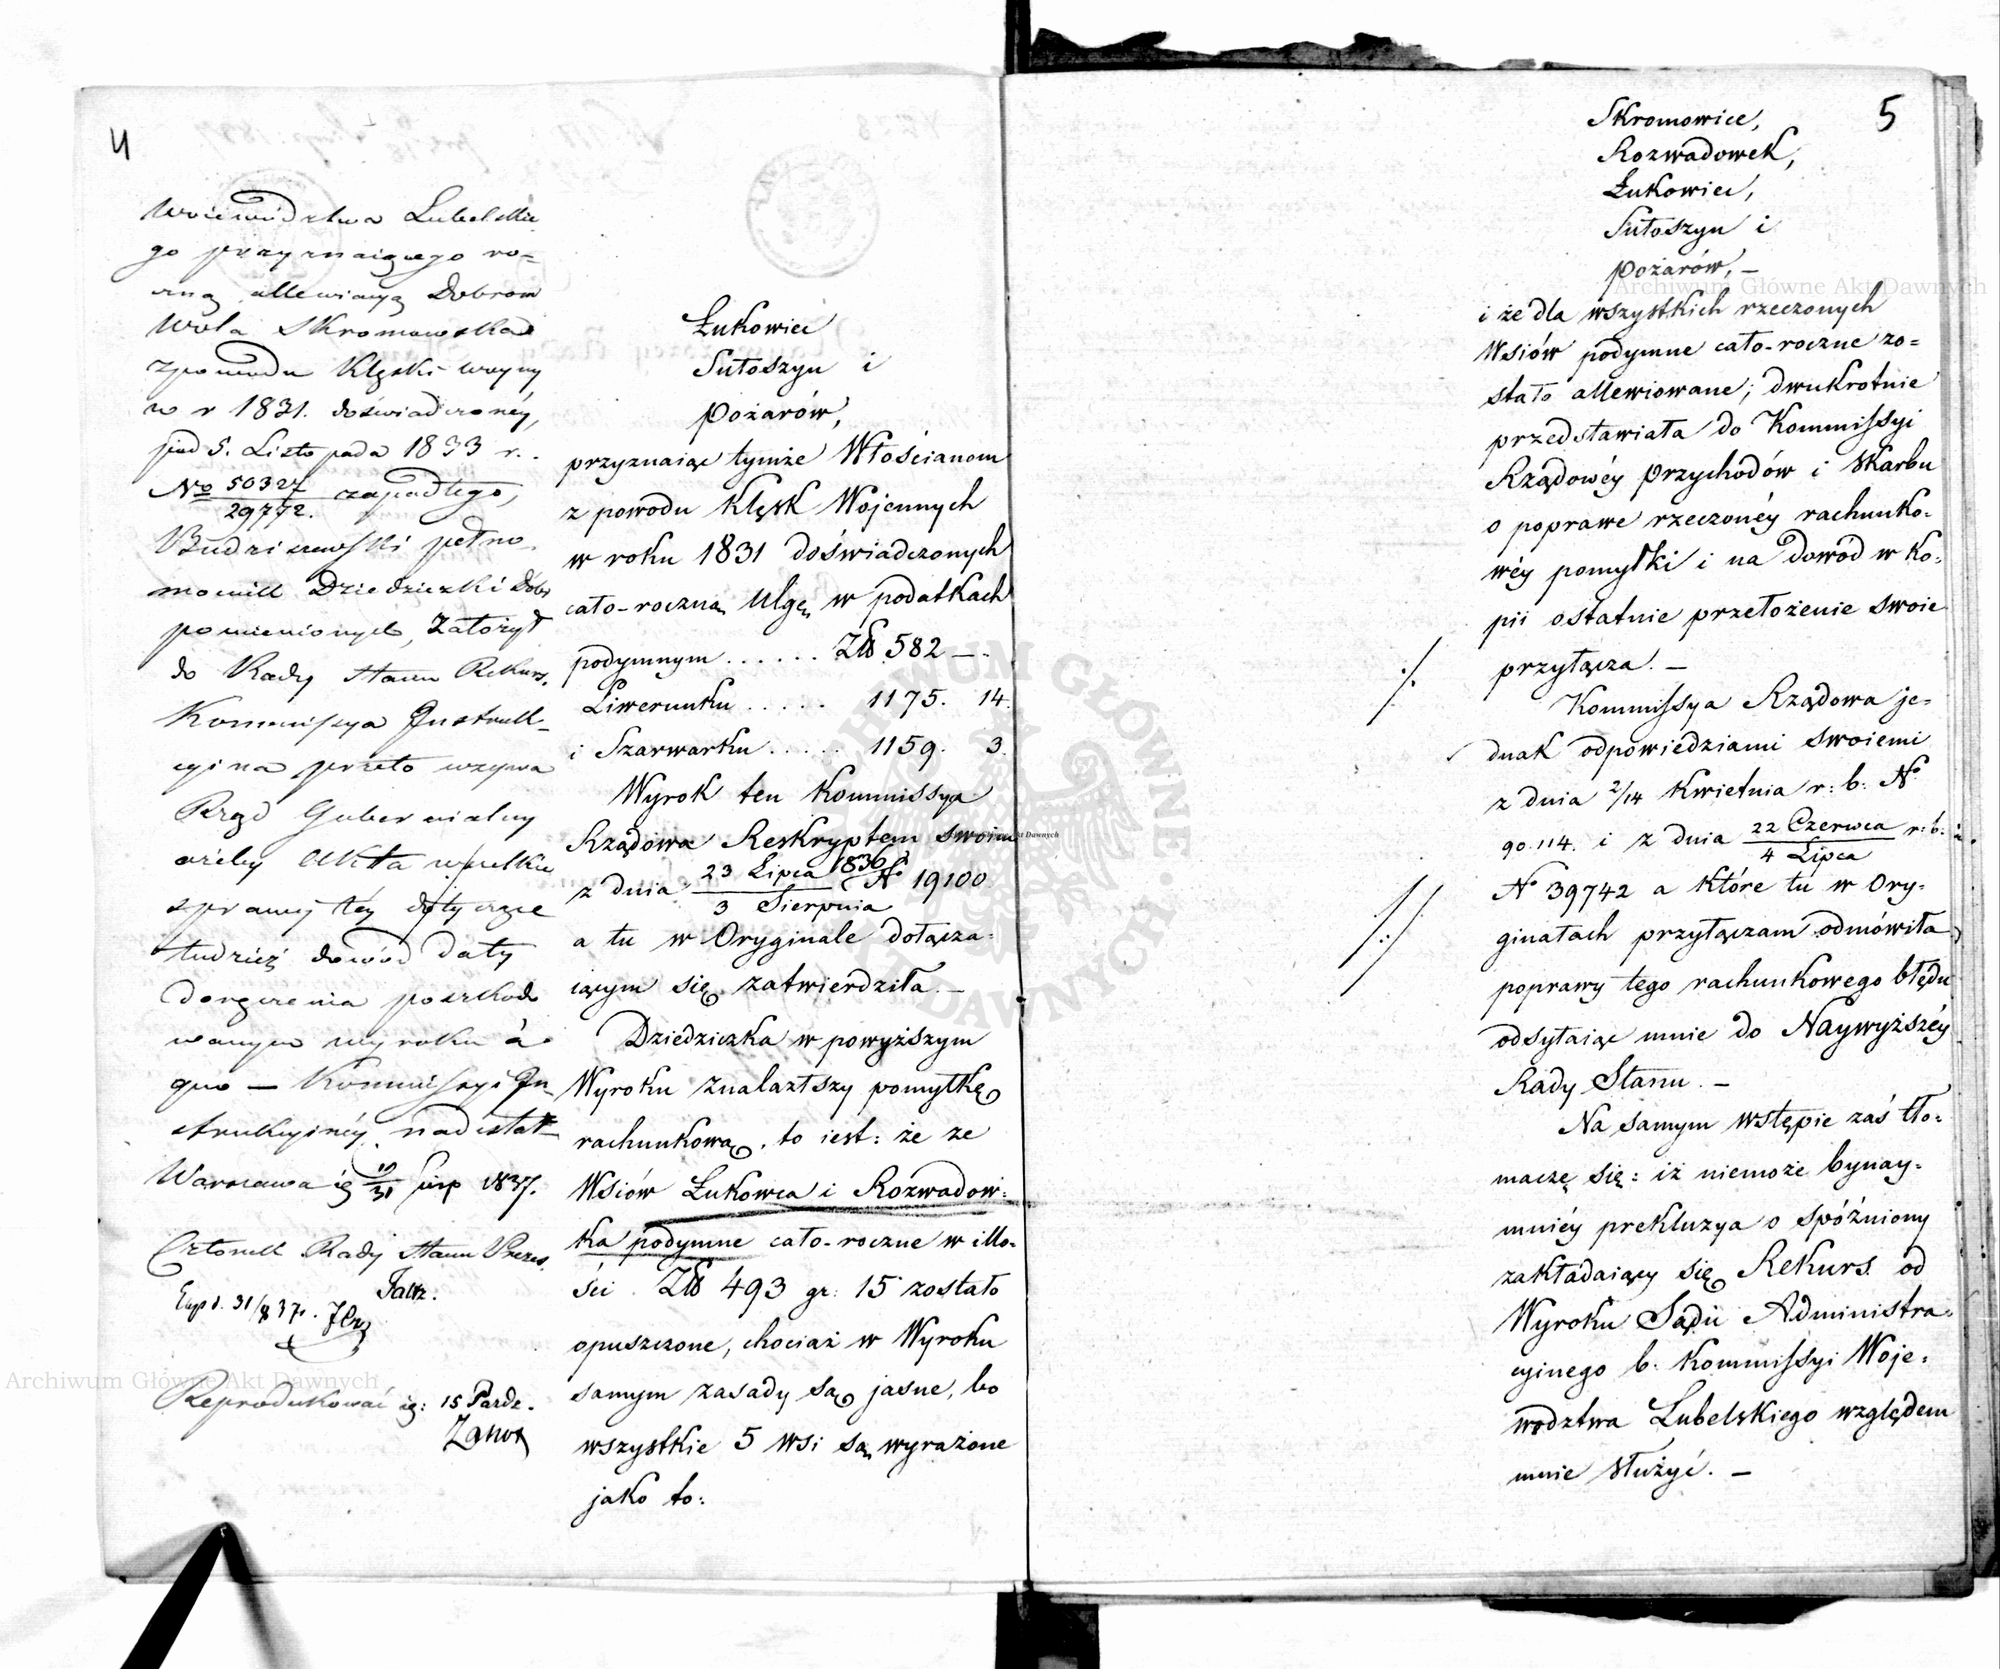 4
Woiewództwa Lubelskie
go przyznaiącego ro=
czną allewiacyą Dobrom
Wola Skromowska
z powodu klęski woyny
w r 1831. doświadczonéy,
pod 5. Listopada 1833 r.
No 50327/29772. zapadłego,
Budziszewski pełno=
mocnik Dziedziczki Dóbr
pomienionych, założył
do Rady Stanu Rekurs.
Kommissya Instruk=
cyina przeto wzywa
Rząd Gubernialny
ażeby Akta wszelkie
sprawy téy dotyczące
tudzież dowód daty
doręczenia poszkodo
wanym wyroku à
quo — Kommissyi In=
strukcyinéy nadesłał
Warszawa 19/31 Sierp 1837.
Członek Rady Stanu Prezes.
Exp d. 31/8 37 r.
Reprodukować 15 Paźdz.
Łukowiec
Sułoszyn i
Pożarów,
przyznaiąc tymże Włościanom
z powodu Klęsk Wojennych
w roku 1831 doświadczonych
cało-roczną Ulgę w podatkach
podymnym . . . . . . Zł 582 —
Liwerunku . . . . . 1175. 14.
i Szarwarku . . . . . 1159. 3.
Wyrok ten Kommissya
Rządowa Reskryptem swoim
z dnia 23 Lipca/3 Sierpnia 1836 No 19100
a tu w Oryginale dołącza=
iącym się zatwierdziła. —
Dziedziczka w powyższym
Wyroku znalazłszy pomyłkę
rachunkową, to iest: że ze
Wsiów Łukowca i Rozwadow=
ka podymne cało-roczne w illo=
ści Zł 493 gr: 15 zostało
opuszczone, chociaż w Wyroku
samym zasady są jasne, bo
wszystkie 5 wsi są wyrażone
jako to:
5
Skromowice,
Rozwadowek,
Łukowiec,
Sułoszyn i
Pożarów, —
i że dla wszystkich rzeczonych
Wsiów podymne cało-roczne zo=
stało allewiowane; dwukrotnie
przedstawiała do Kommissyi
Rządowéy Przychodów i Skarbu
o poprawę rzeczonéy rachunko=
wéy pomyłki i na dowód w ko=
pii ostatnie przełożenie swoie
przyłącza. —
Kommissya Rządowa je=
dnak odpowiedziami swoiemi
z dnia 2/14 Kwietnia r: b: No
90.114. i z dnia 22 Czerwca/4 Lipca r: b:
No 39742 a które tu w Ory=
ginałach przyłączam odmówiła
poprawy tego rachunkowego błędu
odsyłaiąc mnie do Naywyższéy
Rady Stanu. —
Na samym wstępie zaś tło=
maczę się: iż niemoże bynay=
mniéy prekluzya o spóźniony
zakładaiący się Rekurs od
Wyroku Sądu Administra=
cyjnego b. Kommissyi Woje=
wodztwa Lubelskiego względem
mnie służyć. —
Archiwum Główne Akt Dawnych
Archiwum Główne Akt Dawnych
ARCHIWUM GŁÓWNE AKT DAWNYCH